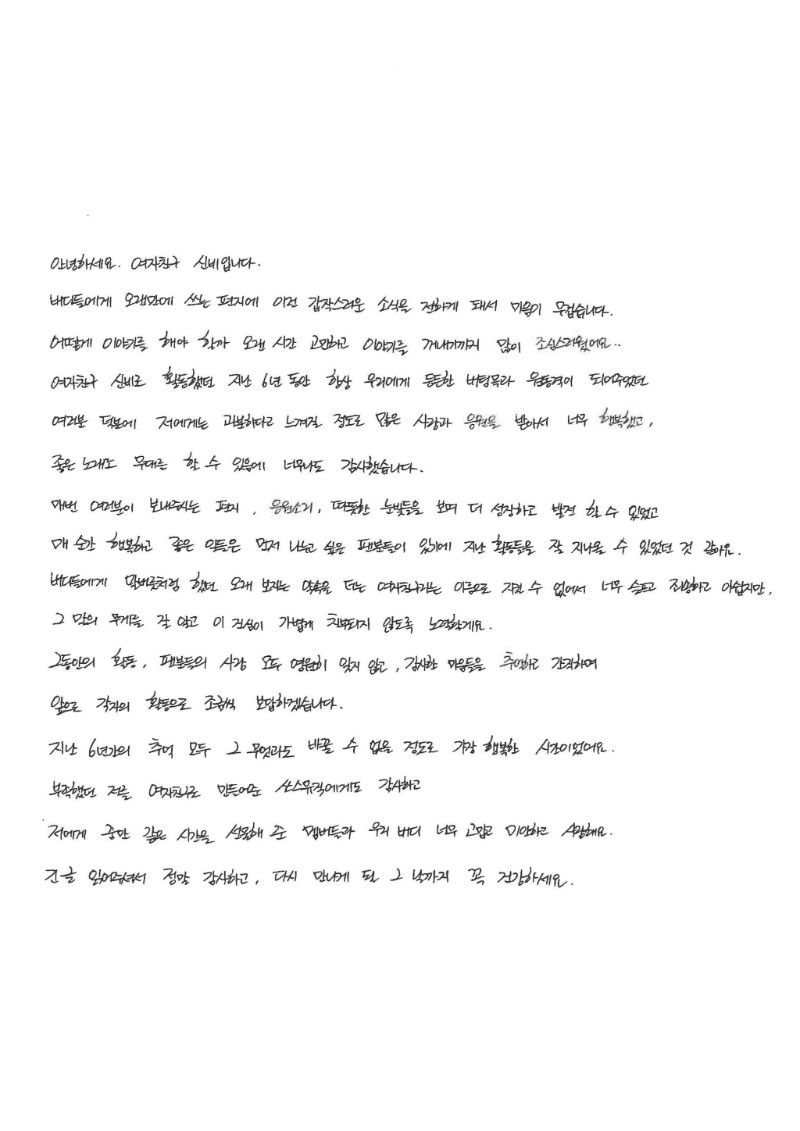 안녕하세요. 여자친구 신비입니다.
버디들에게 오랜만에 쓰는 편지에 이런 갑작스러운 소식을 전하게 돼서 마음이 무겁습니다.
어떻게 이야기를 해야 할까 오랜 시간 고민하고 이야기를 꺼내기까지 많이 조심스러웠어요..
여자친구 신비로 활동했던 지난 6년 동안 항상 우리에게 든든한 버팀목과 원동력이 되어주었던
여러분 덕분에 저에게는 과분하다고 느껴질 정도로 많은 사랑과 응원을 받아서 너무 행복했고,
좋은 노래도 무대로 할 수 있음에 너무나도 감사했습니다.
매번 여러분이 보내주시는 편지, 응원소리, 따뜻한 눈빛들을 보며 더 성장하고 발전 할 수 있었고
매 순간 행복하고 좋은 일들은 먼저 나누고 싶은 팬분들이 있기에 지난 활동들을 잘 지나올 수 있었던 것 같아요.
버디들에게 말버릇처럼 했던 오래 보자는 약속을 더는 여자친구라는 이름으로 지킬 수 없어서 너무 슬프고 죄송하고 아쉽지만,
그 말의 무게를 잘 알고 이 진심이 가볍게 치부되지 않도록 노력할게요.
그동안의 활동, 팬분들의 사랑 모두 영원히 잊지 않고, 감사한 마음들을 추억하고 간직하며
앞으로 각자의 활동으로 조금씩 보답하겠습니다.
지난 6년간의 추억 모두 그 무엇과도 바꿀 수 없을 정도로 가장 행복한 시간이었어요.
부족했던 저를 여자친구로 만들어준 쏘스뮤직에게도 감사하고
저에게 꿈만 같은 시간을 선물해 준 멤버들과 우리 버디 너무 고맙고 미안하고 사랑해요.
긴 글 읽어주셔서 정말 감사하고, 다시 만나게 될 그 날까지 꼭 건강하세요.